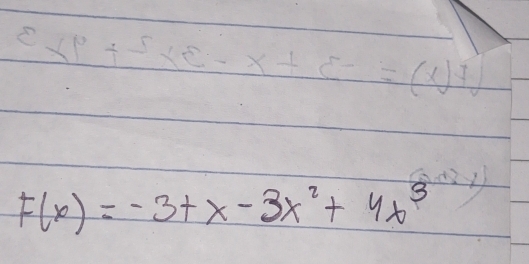 F(x) = -3 + x - 3x² + 4x³